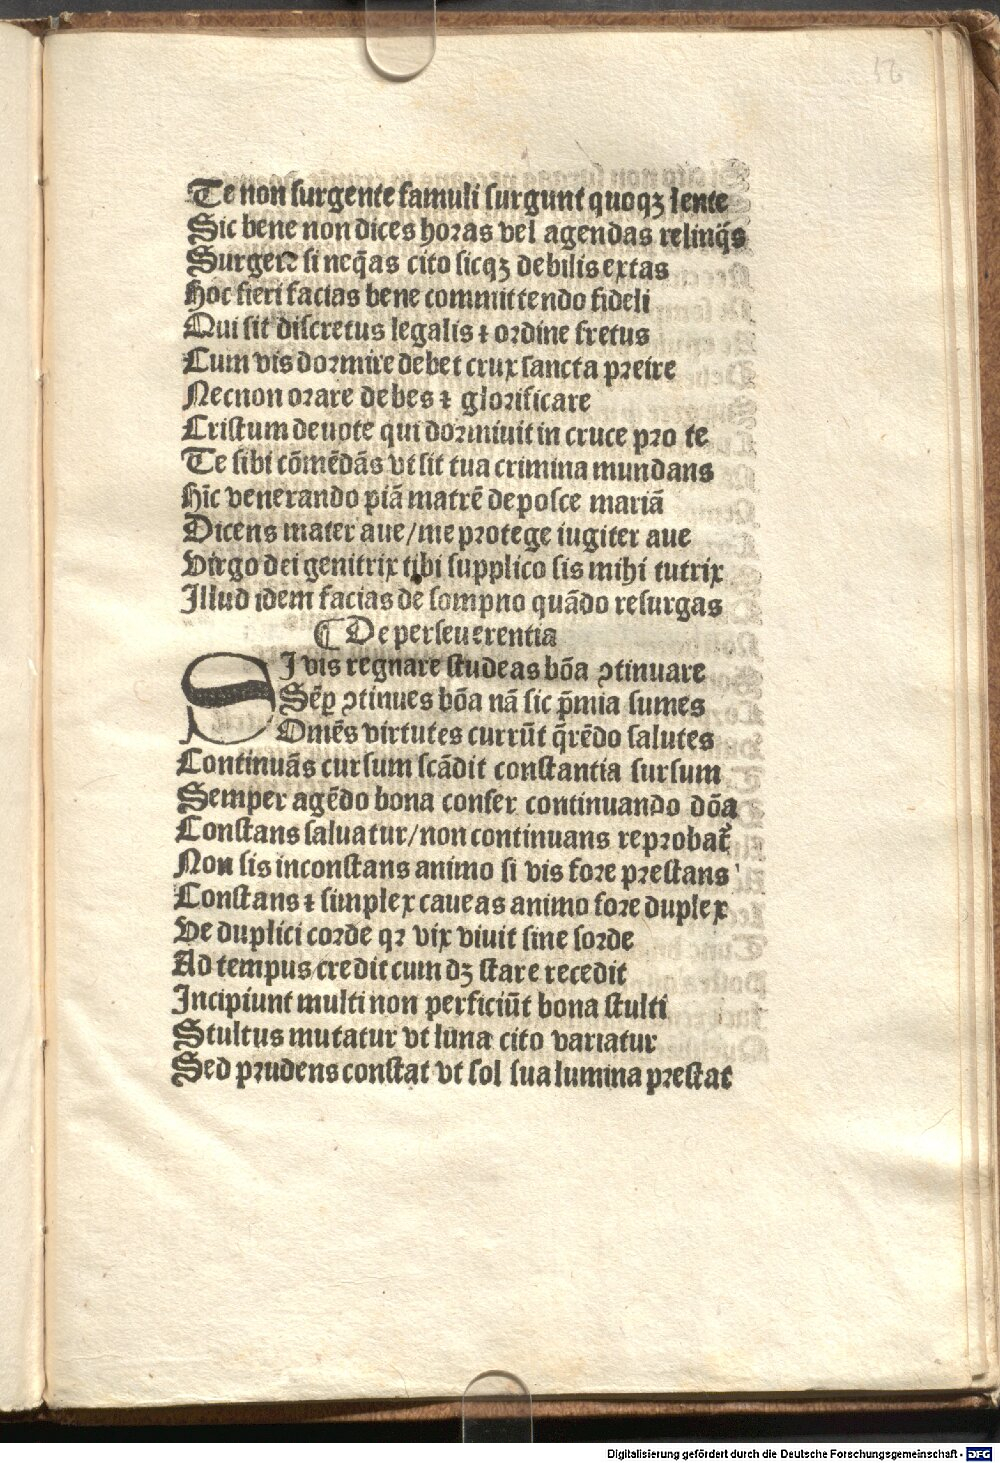 52
Te non surgente famuli surgunt quoqꝫ lente
Sic bene non dices horas vel agendas relinq̃s
Surgere si neq̃as cito sicqꝫ debilis extas
Hoc fieri facias bene committendo fideli
Qui sit discretus legalis ⁊ ordine fretus
Cum vis dormire debet crux sancta preire
Necnon orare debes ⁊ glorificare
Cristum deuote qui dormiuit in cruce pro te
Te sibi cõmẽdãs vt sit tua crimina mundans
Hĩc venerando piã matrẽ deposce mariã
Dicens mater aue/me protege iugiter aue
Virgo dei genitrix tibi supplico sis mihi tutrix
Illud idem facias de sompno quãdo resurgas
⸿ De perseuerentia
SI vis regnare studeas bõa ꝯtinuare
Sẽꝑ ꝯtinues bõa nã sic p̃mia sumes
Omẽs virtutes currũt q̃rẽdo salutes
Continuãs cursum scãdit constantia sursum
Semper agẽdo bona confer continuando dõa
Constans saluatur/non continuans reprobat᷑
Non sis inconstans animo si vis fore prestans
Constans ⁊ simplex caueas animo fore duplex
Ve duplici corde qꝛ vix viuit sine sorde
Ad tempus credit cum dꝫ stare recedit
Incipiunt multi non perficiũt bona stulti
Stultus mutatur vt luna cito variatur
Sed prudens constat vt sol sua lumina prestat
Digitalisierung gefördert durch die Deutsche Forschungsgemeinschaft - DFG